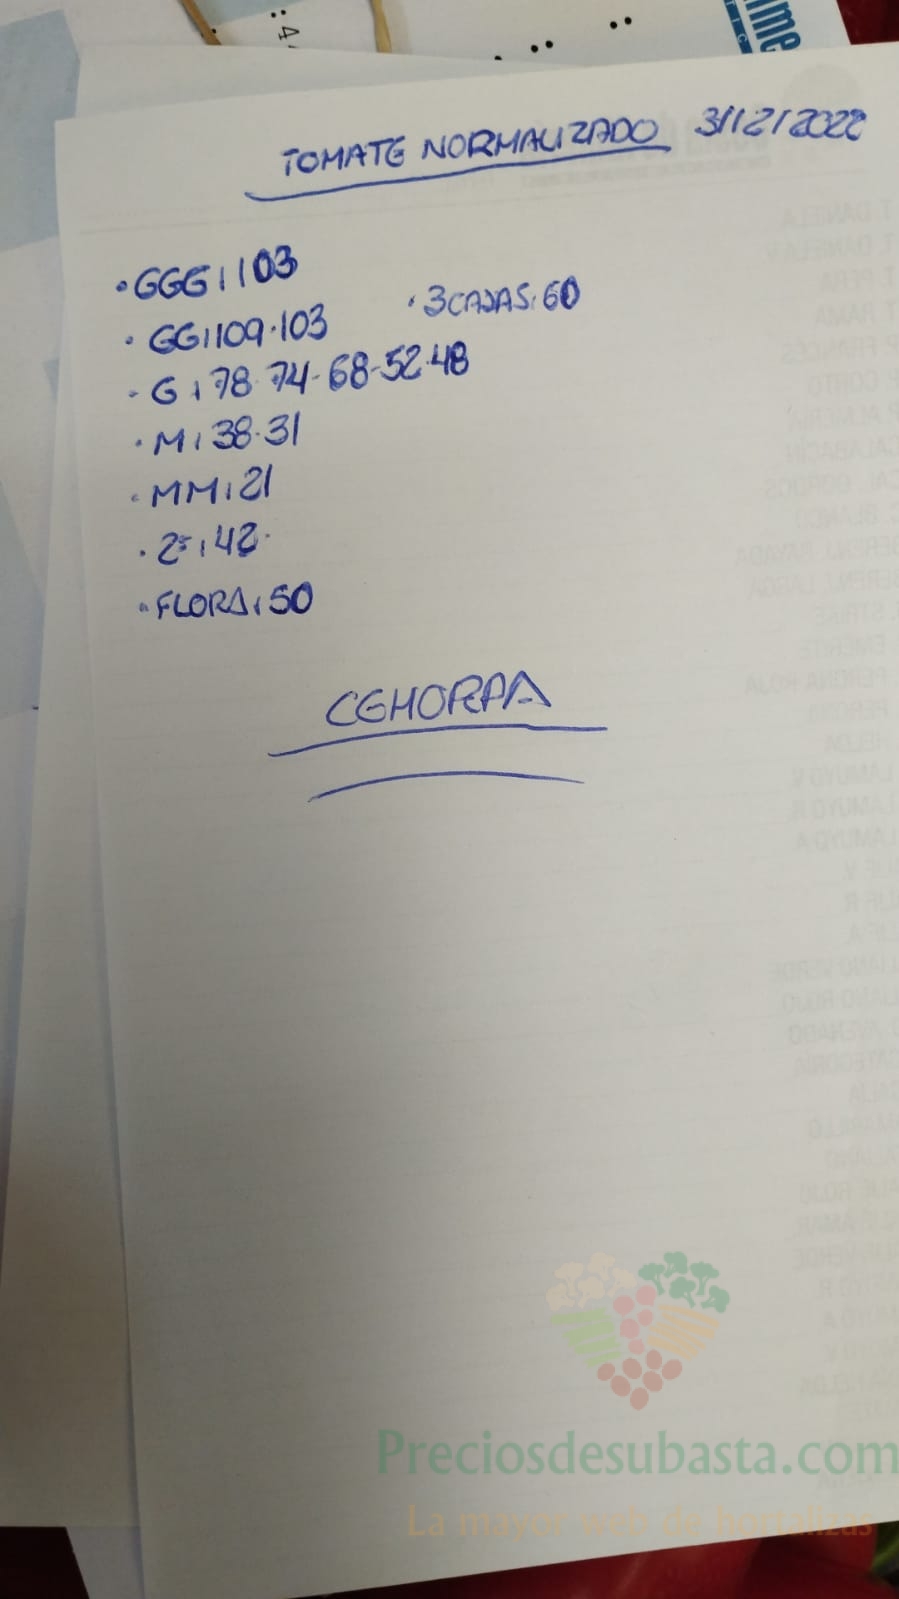 TOMATE NORMALIZADO 31/12/2022
· GGG: 103
· GG: 109·103
· 3 CAJAS: 60
· G: 78·74-68-52-48
· M: 38·31
· MM: 21
· 2ª: 42·
· FLORA: 50
CEHORPA
Preciosdesubasta.com
La mayor web de hortalizas